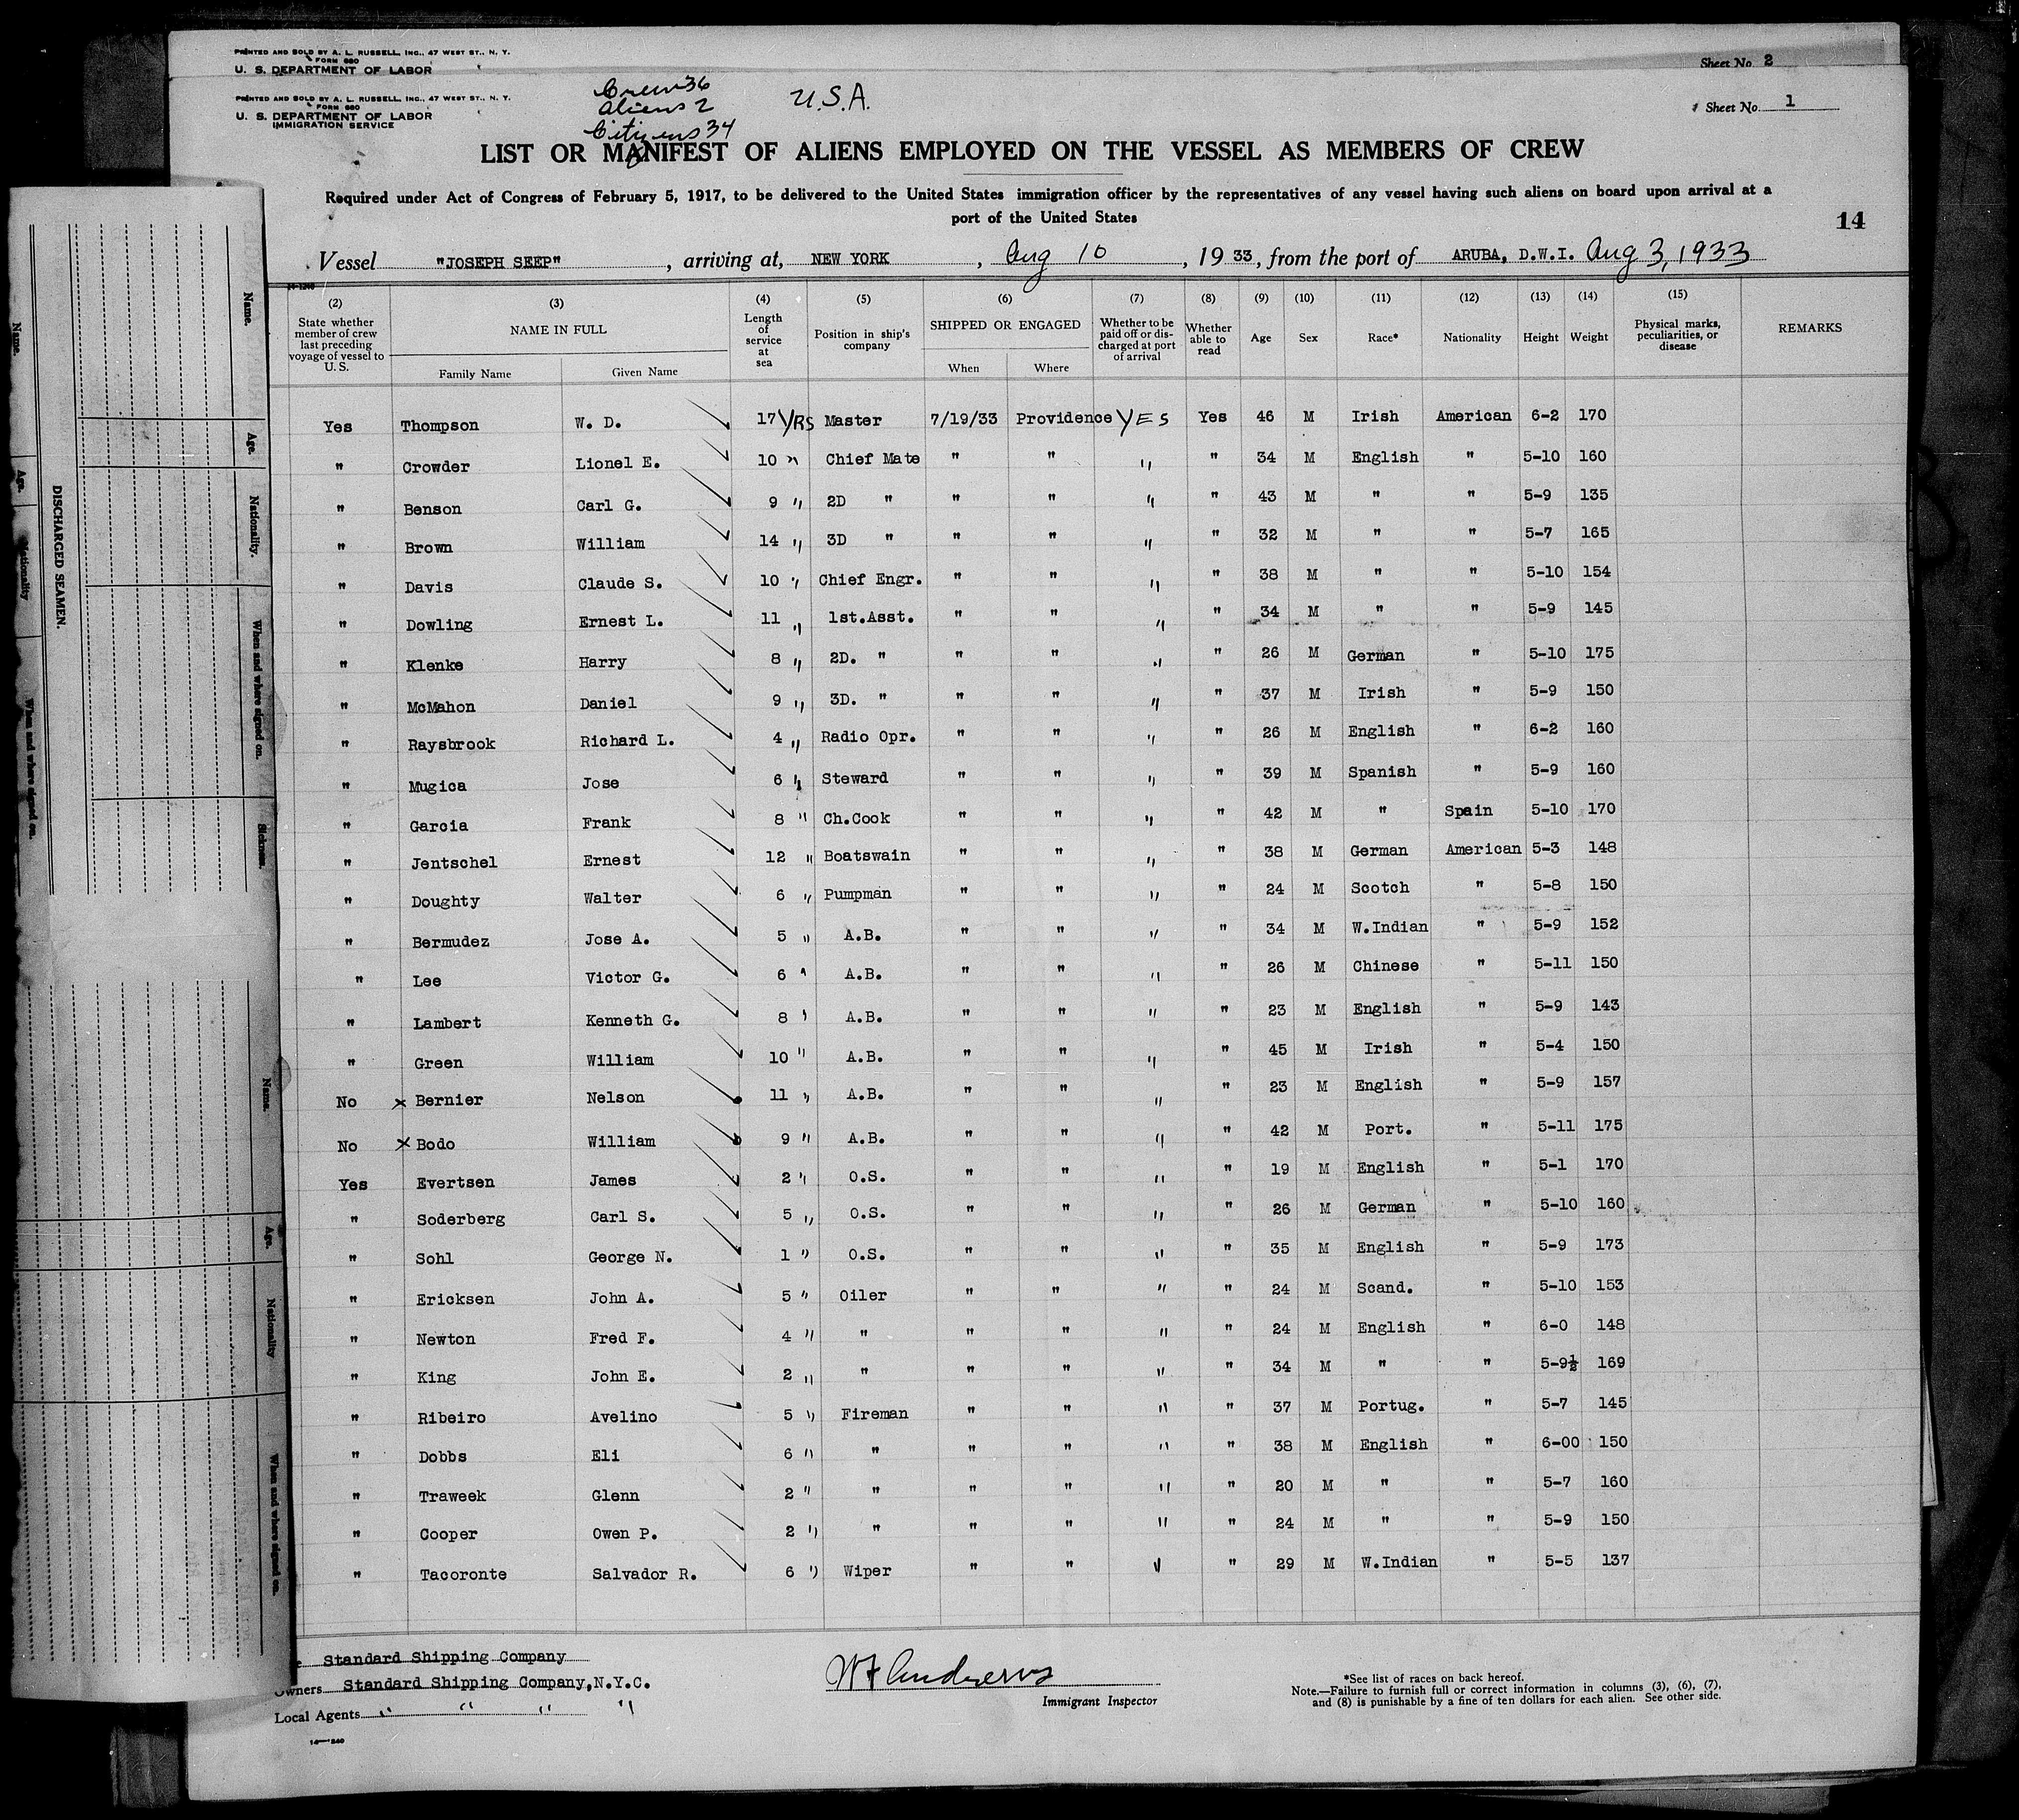 PRINTED AND SOLD BY A. L. RUSSELL, INC., 47 WEST ST., N. Y.
FORM 680
U. S. DEPARTMENT OF LABOR
Sheet No. 2
PRINTED AND SOLD BY A. L. RUSSELL, INC., 47 WEST ST., N. Y.
FORM 680
U. S. DEPARTMENT OF LABOR
IMMIGRATION SERVICE
Crew 36
Aliens 2
Citizens 34
U.S.A.
Sheet No. 1
LIST OR MANIFEST OF ALIENS EMPLOYED ON THE VESSEL AS MEMBERS OF CREW
Required under Act of Congress of February 5, 1917, to be delivered to the United States immigration officer by the representatives of any vessel having such aliens on board upon arrival at a
port of the United States
14
Vessel "JOSEPH SEEP", arriving at, NEW YORK, Aug 10, 1933, from the port of ARUBA, D.W.I. Aug 3, 1933
(2) (3) (4) (5) (6) (7) (8) (9) (10) (11) (12) (13) (14) (15)
State whether member of crew last preceding voyage of vessel to U. S. NAME IN FULL Family Name Given Name Length of service at sea Position in ship's company SHIPPED OR ENGAGED When Where Whether to be paid off or discharged at port of arrival Whether able to read Age Sex Race* Nationality Height Weight Physical marks, peculiarities, or disease REMARKS
Yes Thompson W. D. 17 YRS Master 7/19/33 Providence YES Yes 46 M Irish American 6-2 170
" Crowder Lionel E. 10 " Chief Mate " " " " 34 M English " 5-10 160
" Benson Carl G. 9 " 2D " " " " " 43 M " " 5-9 135
" Brown William 14 " 3D " " " " " 32 M " " 5-7 165
" Davis Claude S. 10 " Chief Engr. " " " " 38 M " " 5-10 154
" Dowling Ernest L. 11 " 1st.Asst. " " " " 34 M " " 5-9 145
" Klenke Harry 8 " 2D. " " " " " 26 M German " 5-10 175
" McMahon Daniel 9 " 3D. " " " " " 37 M Irish " 5-9 150
" Raysbrook Richard L. 4 " Radio Opr. " " " " 26 M English " 6-2 160
" Mugica Jose 6 " Steward " " " " 39 M Spanish " 5-9 160
" Garcia Frank 8 " Ch.Cook " " " " 42 M " Spain 5-10 170
" Jentschel Ernest 12 " Boatswain " " " " 38 M German American 5-3 148
" Doughty Walter 6 " Pumpman " " " " 24 M Scotch " 5-8 150
" Bermudez Jose A. 5 " A.B. " " " " 34 M W.Indian " 5-9 152
" Lee Victor G. 6 " A.B. " " " " 26 M Chinese " 5-11 150
" Lambert Kenneth G. 8 " A.B. " " " " 23 M English " 5-9 143
" Green William 10 " A.B. " " " " 45 M Irish " 5-4 150
No x Bernier Nelson 11 " A.B. " " " " 23 M English " 5-9 157
No x Bodo William 9 " A.B. " " " " 42 M Port. " 5-11 175
Yes Evertsen James 2 " O.S. " " " " 19 M English " 5-1 170
" Soderberg Carl S. 5 " O.S. " " " " 26 M German " 5-10 160
" Sohl George N. 1 " O.S. " " " " 35 M English " 5-9 173
" Ericksen John A. 5 " Oiler " " " " 24 M Scand. " 5-10 153
" Newton Fred F. 4 " " " " " " 24 M English " 6-0 148
" King John E. 2 " " " " " " 34 M " " 5-9½ 169
" Ribeiro Avelino 5 " Fireman " " " " 37 M Portug. " 5-7 145
" Dobbs Eli 6 " " " " " " 38 M English " 6-00 150
" Traweek Glenn 2 " " " " " " 20 M " " 5-7 160
" Cooper Owen P. 2 " " " " " " 24 M " " 5-9 150
" Tacoronte Salvador R. 6 " Wiper " " " " 29 M W.Indian " 5-5 137
Standard Shipping Company
Owners Standard Shipping Company, N.Y.C.
Local Agents " " " "
Immigrant Inspector
*See list of races on back hereof.
Note.—Failure to furnish full or correct information in columns (3), (6), (7),
and (8) is punishable by a fine of ten dollars for each alien. See other side.
DISCHARGED SEAMEN.
Name. Age. Nationality. When and where signed on. Sickness.
Name. Age. Nationality When and where signed on.
Name. Age. Nationality When and where signed on.